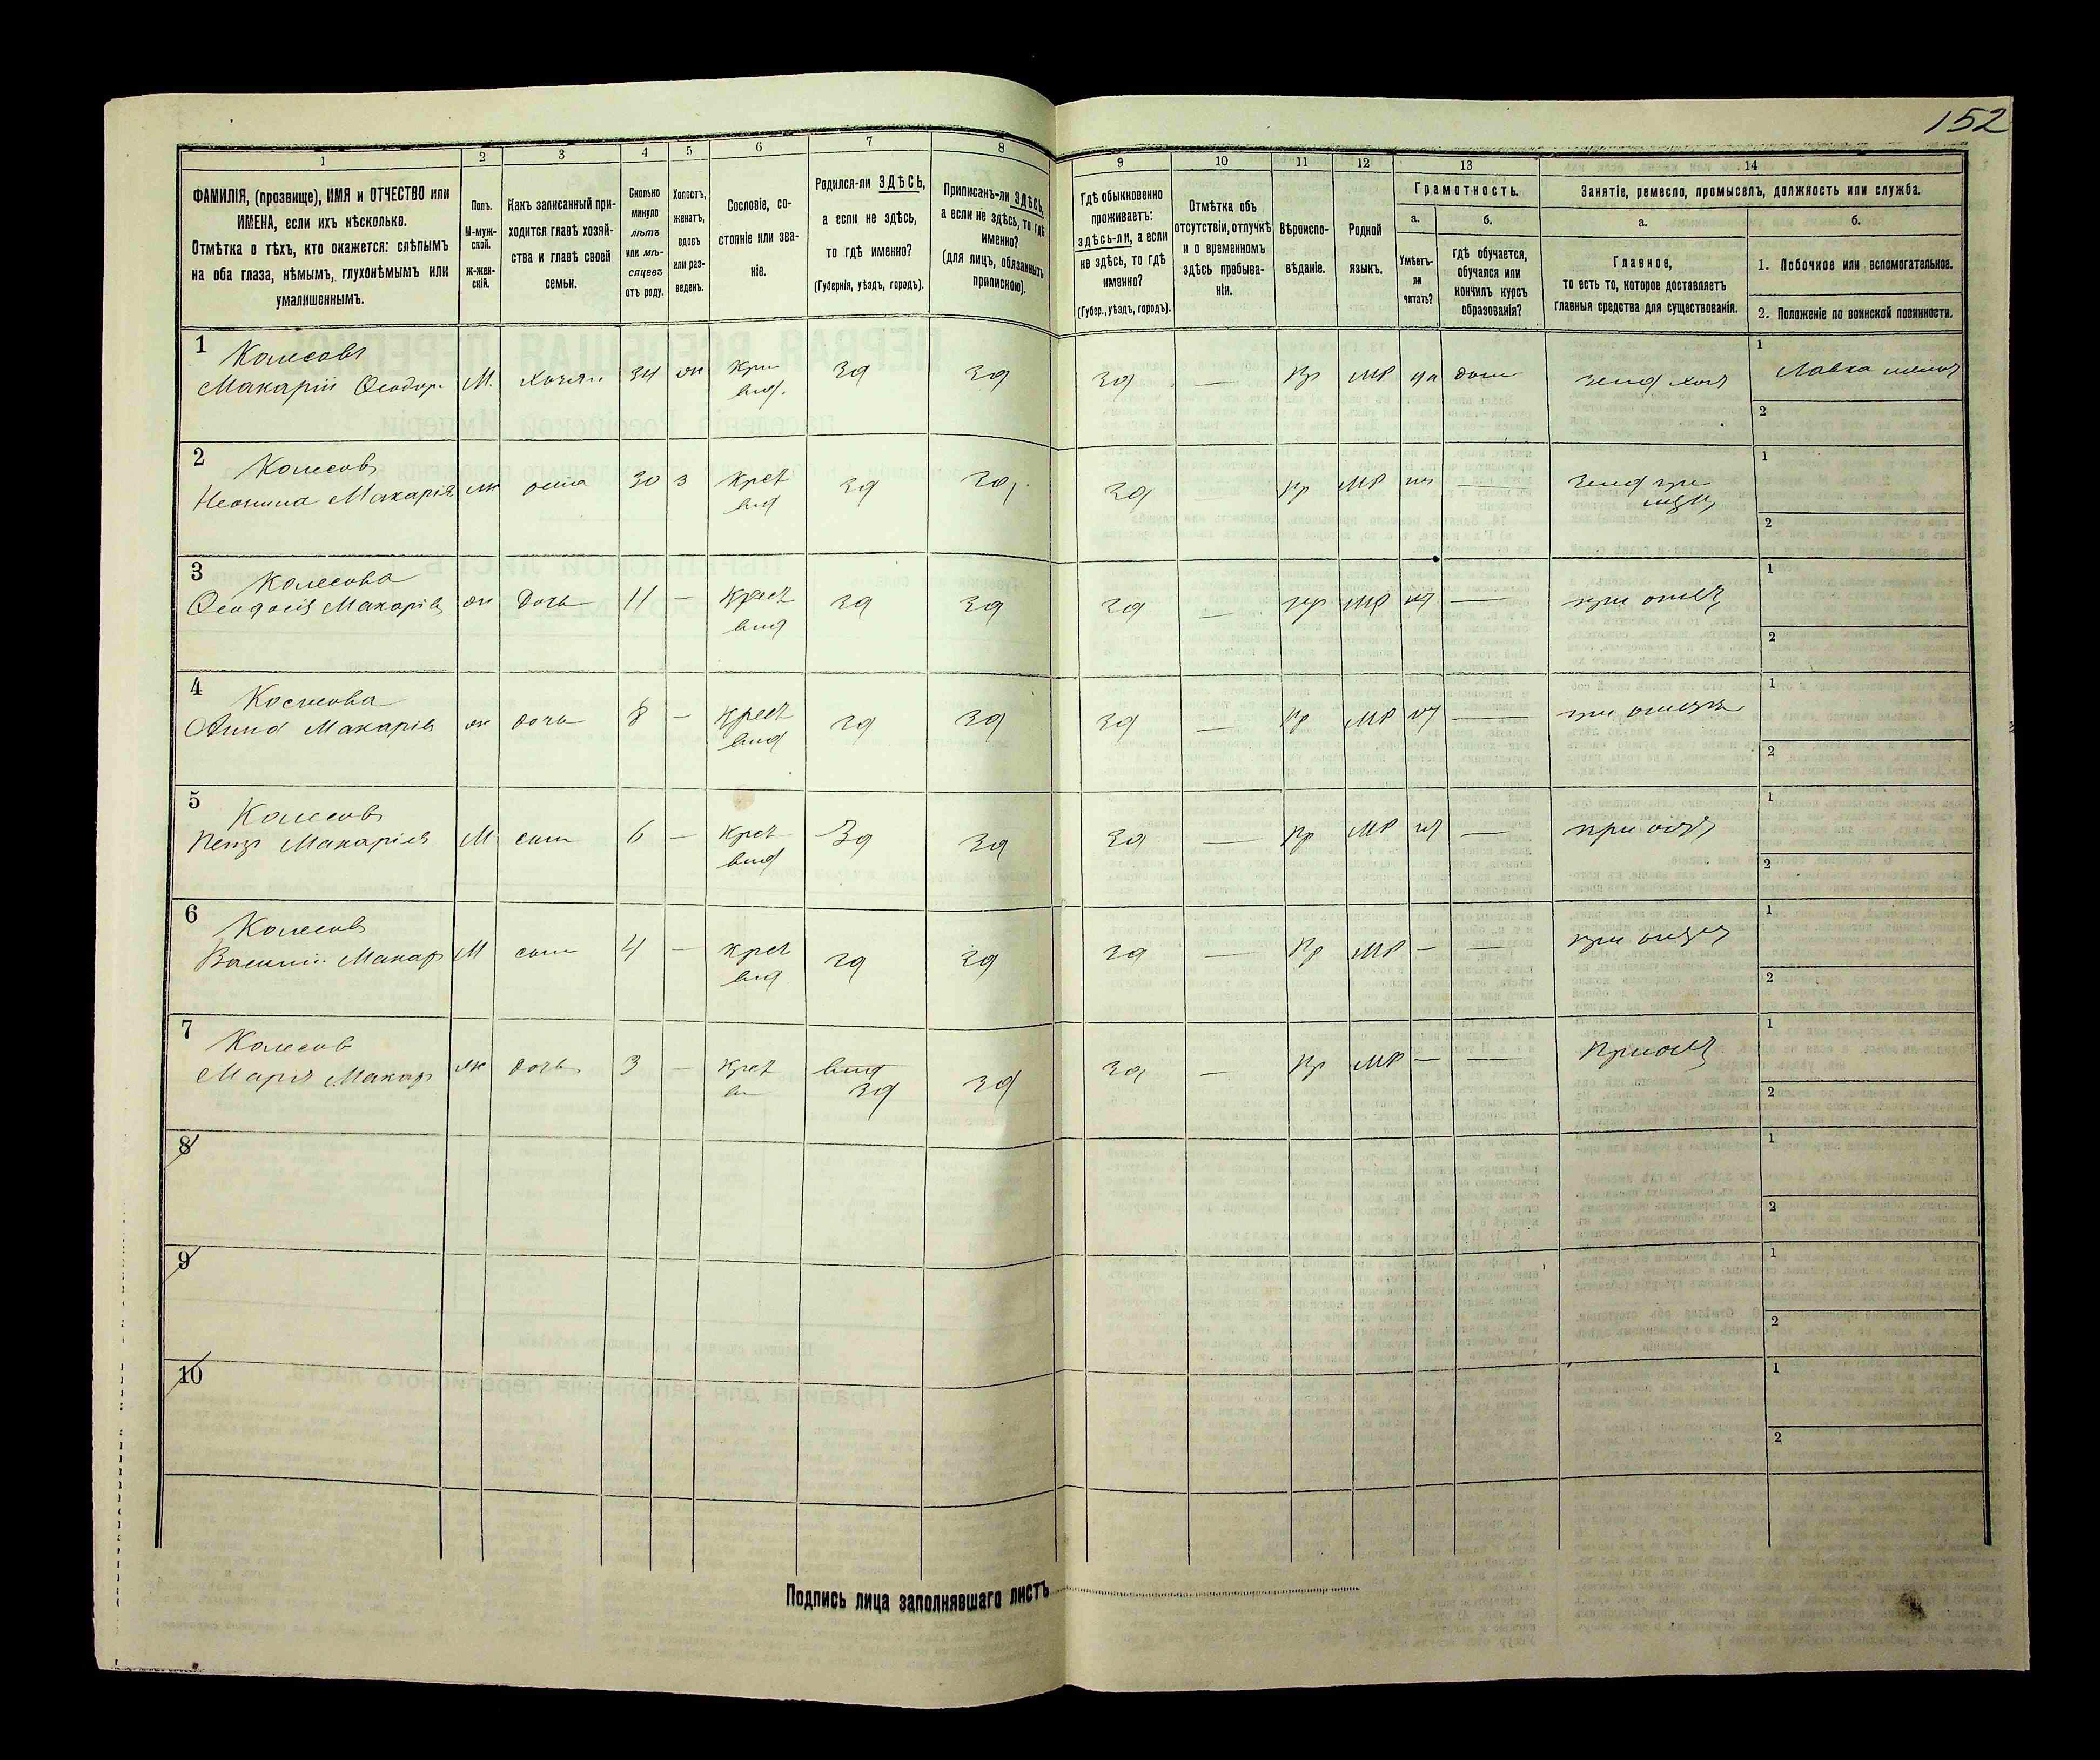 152
1 2 3 4 5 6 7 8 9 10 11 12 13 14
ФАМИЛІЯ, (прозвище), ИМЯ и ОТЧЕСТВО или
ИМЕНА, если ихъ нѣсколько.
Отмѣтка о тѣхъ, кто окажется: слѣпымъ
на оба глаза, нѣмымъ, глухонѣмымъ или
умалишеннымъ.
Полъ.
М-муж-
ской.
ж-жен-
скій.
Какъ записанный при-
ходится главѣ хозяй-
ства и главѣ своей
семьи.
Сколько
минуло
лѣтъ
или мѣ-
сяцевъ
отъ роду.
Холостъ,
женатъ,
вдовъ
или раз-
веденъ.
Сословіе, со-
стояніе или зва-
ніе.
Родился-ли ЗДѢСЬ,
а если не здѣсь,
то гдѣ именно?
(Губернія, уѣздъ, городъ).
Приписанъ-ли ЗДѢСЬ,
а если не здѣсь, то гдѣ
именно?
(для лицъ, обязанныхъ
припискою).
Гдѣ обыкновенно
проживаетъ:
здѣсь-ли, а если
не здѣсь, то гдѣ
именно?
(Губер., уѣздъ, городъ).
Отмѣтка объ
отсутствіи, отлучкѣ
и о временномъ
здѣсь пребыва-
ніи.
Вѣроиспо-
вѣданіе.
Родной
языкъ.
Грамотность.
а.
Умѣетъ-
ли
читать?
б.
гдѣ обучается,
обучался или
кончилъ курсъ
образованія?
Занятіе, ремесло, промыселъ, должность или служба.
а.
Главное,
то есть то, которое доставляетъ
главныя средства для существованія.
б.
1. Побочное или вспомогательное.
2. Положеніе по воинской повинности.
1
Колесовъ
Макарій Ѳеодор. М. хозяи 34 ж
зд зд зд — Пр МР да дом
1 Лавка
2
2
Колесов
Макарія ж 30 з Крест
зд зд зд — пр МР —
1
2
3
Колесова
Ѳеодосія Макарів ж Дочь 11 — Крест
зд зд зд — пр МР —
1
2
4
Анна Макарів ж дочь 8 — Крест
зд зд зд — Пр МР —
1
2
5
Колесов
Петръ Макаріев М сын 6 — Крест
Зд зд зд — Пр МР —
1
2
6
Колесов
Василій Макар М сын 4 — крест
зд зд зд — Пр МР — —
1
2
7
Колесов
Марія Макар ж дочь 3 — Крест
зд зд зд — Пр МР — —
1
2
8
1
2
9
1
2
10
1
2
Подпись лица заполнявшаго листъ